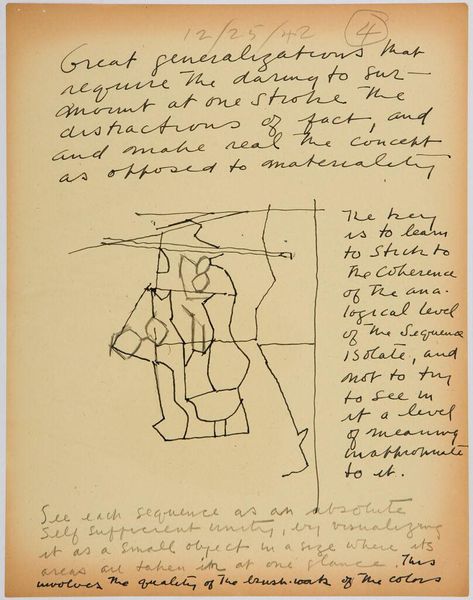 12/25/42 4
Great generalizations that
require the daring to sur-
mount at one stroke the
distractions of fact, and
and make real the concept
as opposed to materiality
The key
is to learn
to stick to
the coherence
of the ana-
logical level
of the sequence
isolate, and
not to try
to see in
it a level
of meaning
inappropriate
to it.
See each sequence as an absolute
self sufficient unity, by visualizing
it as a small object in a size where its
areas are taken in at one glance. This
involves the quality of the brush-work of the colors